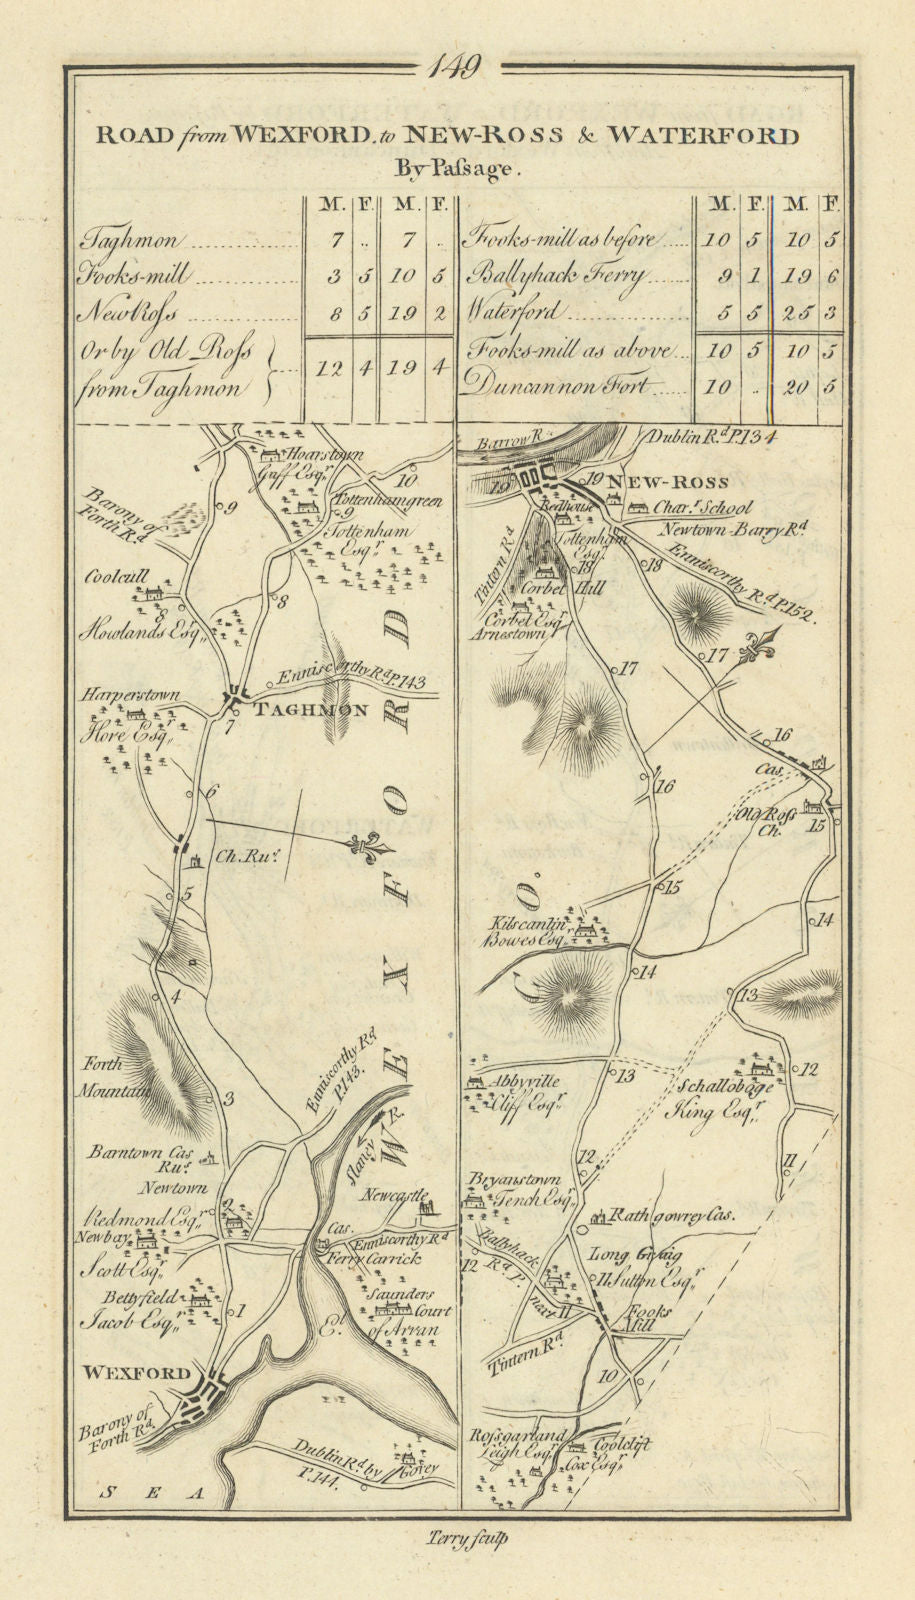 149
ROAD from WEXFORD, to NEW-ROSS & WATERFORD
By Paſsage.
M. F. M. F.
Taghmon 7 .. 7 ..
Fooks-mill 3 5 10 5
New Roſs 8 5 19 2
Or by Old Roſs
from Taghmon 12 4 19 4
M. F. M. F.
Fooks-mill as before 10 5 10 5
Ballyhack Ferry 9 1 19 6
Waterford 5 5 25 3
Fooks-mill as above 10 5 10 5
Duncannon Fort 10 .. 20 5
Hoarstown
Goff Esqr.
10
Tottenhamgreen
9
Tottenham
Esqr.
9
Barony of
Forth Rd.
Coolcull
8
Howlands Esqr.
8
Enniscorthy Rd. P.143
Harperstown
Hore Esqr.
TAGHMON
7
6
Ch. Rus.
5
4
Forth
Mountain
3
Enniscorthy Rd.
P.143.
Barntown Cas
Rus.
Newtown
2
Redmond Esqr.
Newbay
Scott Esqr.
Slaney R.
Newcastle
Cas.
Enniscorthy Rd
Ferry Carrick
Bettyfield
Jacob Esqr.
1
Saunders
Court
El. of Arran
WEXFORD
Barony of
Forth Rd.
Dublin Rd. by
P.144.
Gorey
SEA
WEXFORD
CO.
Barrow R.
Dublin Rd. P.134
19
19
NEW-ROSS
Redhouse
Charr. School
Tottenham
Esqr.
Newtown-Barry Rd.
Tintern Rd
18
18
Enniscorthy Rd. P.152.
Corbet Hill
Corbet Esqr.
Arnestown
17
17
16
16
Cas.
Old Roſs
Ch.
15
15
Kilscanlin
Bowes Esqr.
14
14
13
13
12
Abbyville
Cliff Esqr.
Schallobage
King Esqr.
11
12
Bryanstown
Tench Esqr.
Rathgowrey Cas.
Ballyhack
Rd. P.
next
12
11
Long Graig
11
H. Sutton Esqr.
Fooks
Mill
Tintern Rd.
10
Roſsgarland
Leigh Esqr.
Coolclift
Cox Esqr.
Terry sculp